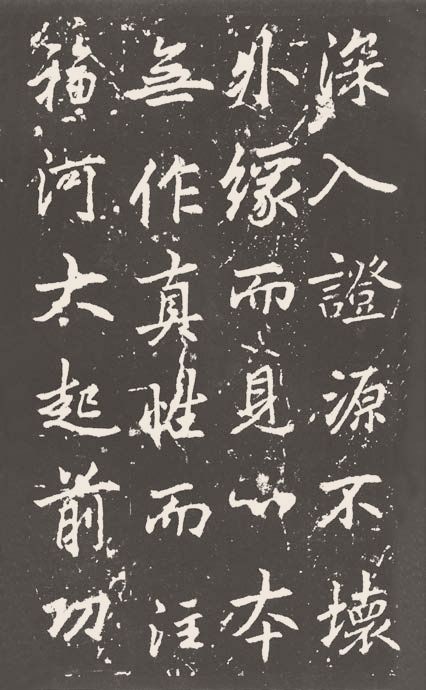 深入證源不壞
外緣而見心本
無作真性而注
福河大起前功